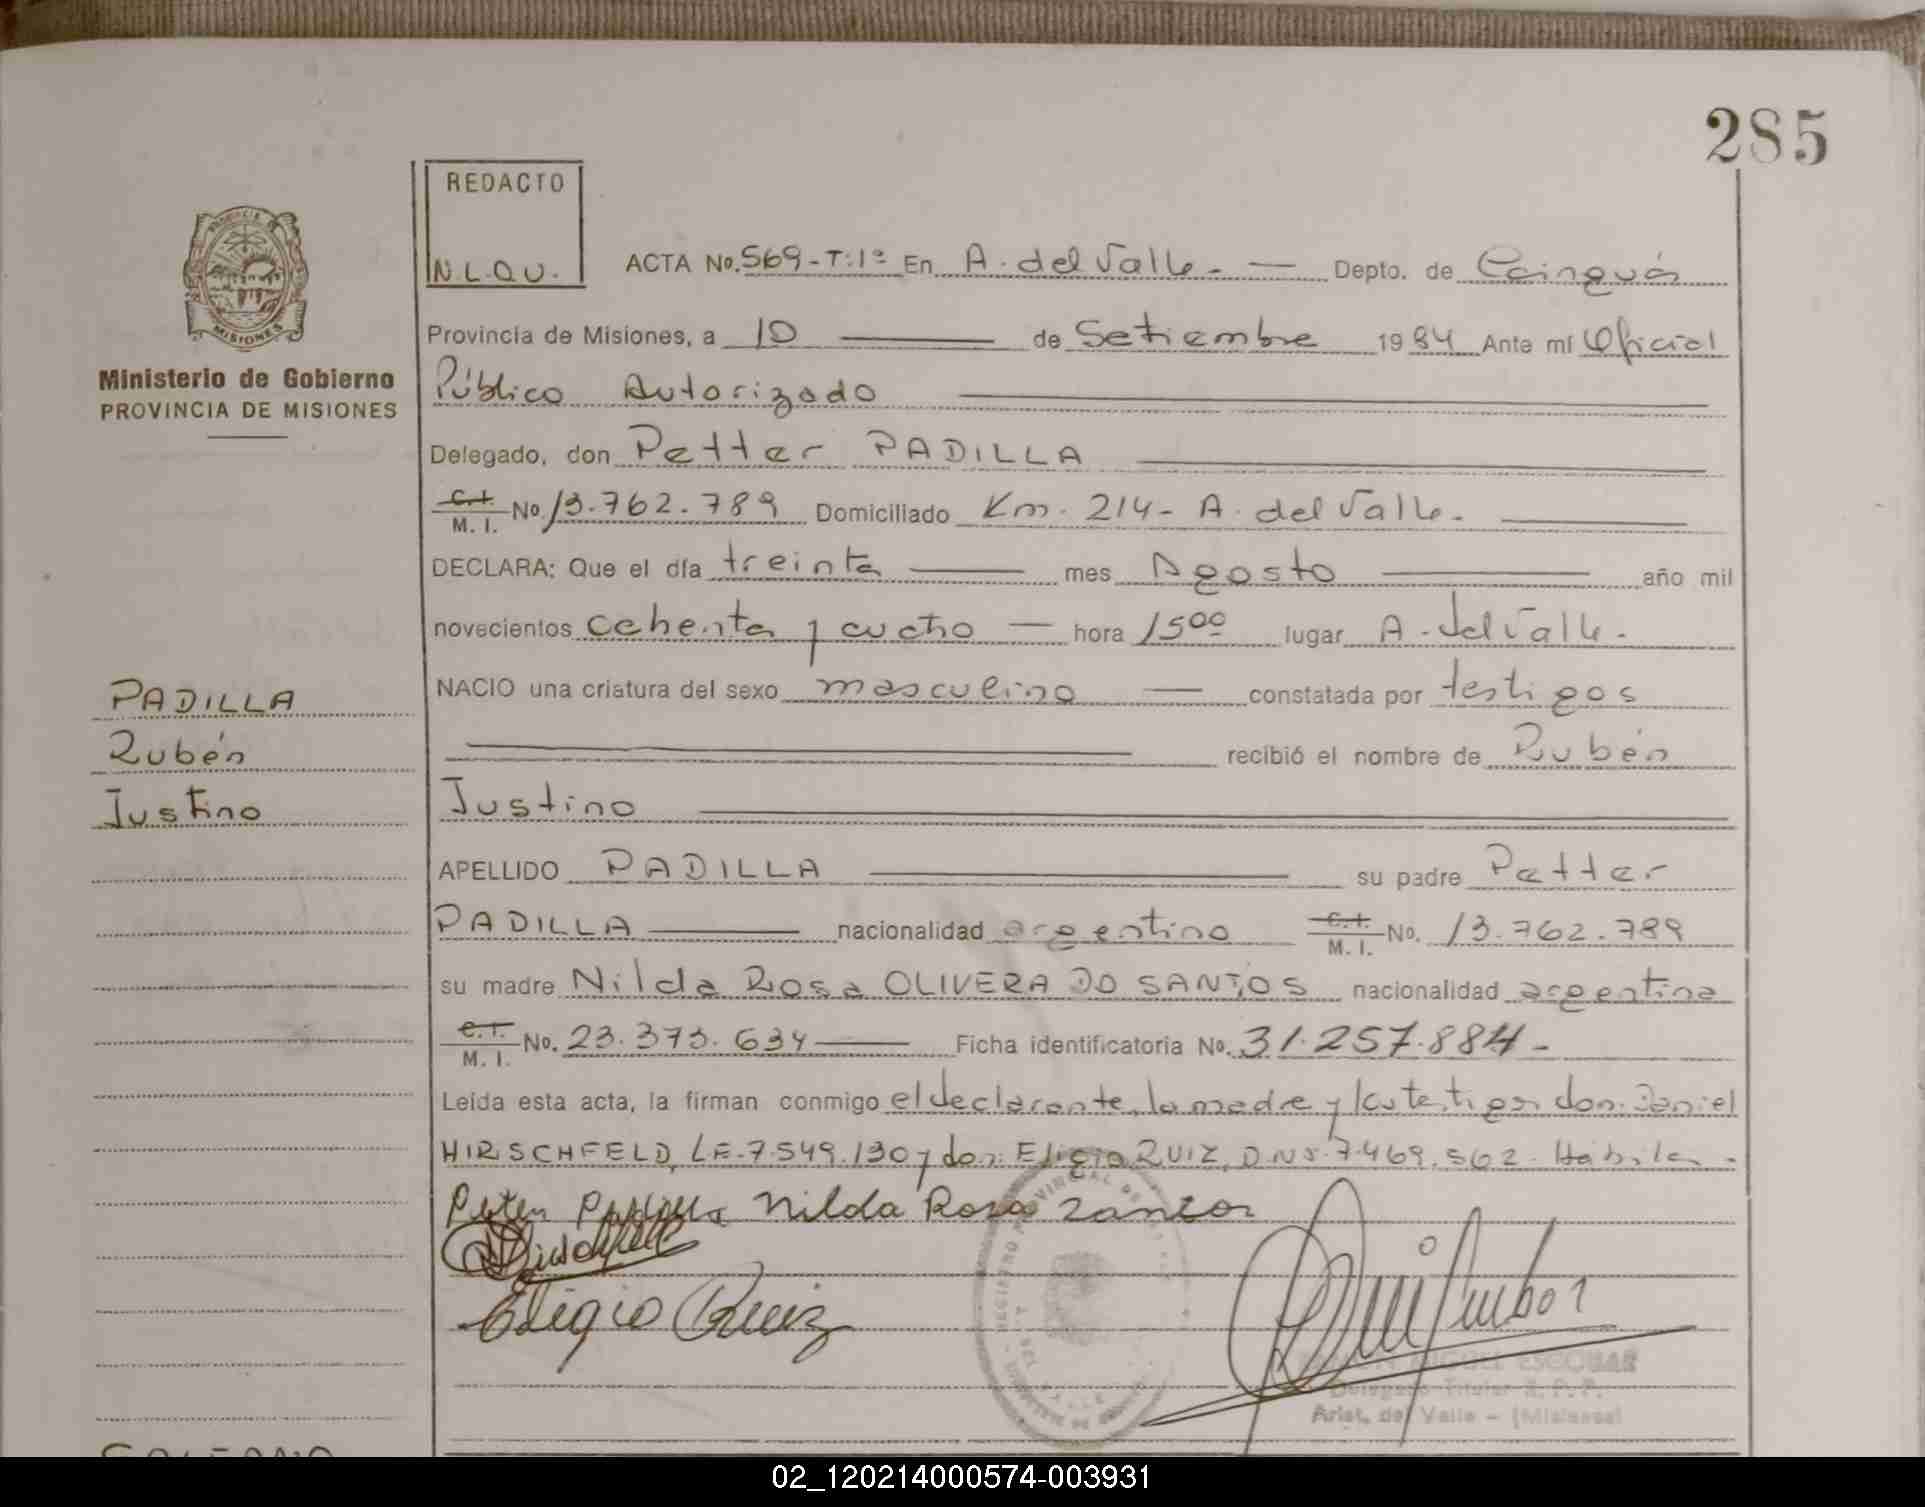 285
REDACTO
N.L.Q.U.
ACTA No. 569-T:1º En A. del Valle. — Depto. de Cainguás
Provincia de Misiones, a 10 — de Setiembre 1984 Ante mí Oficial
Ministerio de Gobierno
PROVINCIA DE MISIONES
Público Autorizado
Delegado, don Petter PADILLA
C.I. M. I. No. 13.762.789 Domiciliado Km. 214- A. del Valle.
DECLARA: Que el día treinta — mes Agosto — año mil
novecientos ochenta y cuatro — hora 15ºº lugar A. del Valle.
NACIO una criatura del sexo masculino — constatada por testigos
PADILLA
Rubén
Justino
recibió el nombre de Rubén
Justino
APELLIDO PADILLA — su padre Petter
PADILLA — nacionalidad argentino C.I. M. I. No. 13.762.789
su madre Nilda Rosa OLIVERA DO SANTOS nacionalidad argentina
C.I. M. I. No. 23.373.634 — Ficha identificatoria No. 31.257.884-
Leída esta acta, la firman conmigo el declarante, la madre y los testigos don: Daniel
HIRSCHFELD, LE-7.549.130 y don: Eligio RUIZ, DNI 7.469.562. Hábiles.
Peter Padilla Nilda Rosa Santos
Eligio Ruiz
MIGUEL ESCOBAR
Delegado Titular R. P. P.
Arist. del Valle - (Misiones)
02_120214000574-003931